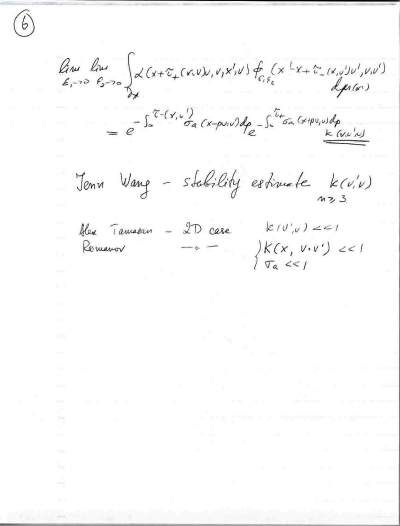 6
lim lim ∫ α(x+τ₊(x,v)v, v, x', v') φ_{ε₁,ε₂}(x' - x + τ₋(x,v')v', v, v')
ε₁→0 ε₂→0 ∂x dμ(x')
= e^{-∫₀^{τ₋(x,v')} σₐ(x-pv,v)dp} e^{-∫₀^{τ₊} σₐ(x+pv,v)dp} k(v',v)
Jenn Wang – stability estimate k(v',v)
n ≥ 3
Alex Tamasan – 2D case k(v',v) << 1
Romanov –"– } k(x, v·v') << 1
σₐ << 1